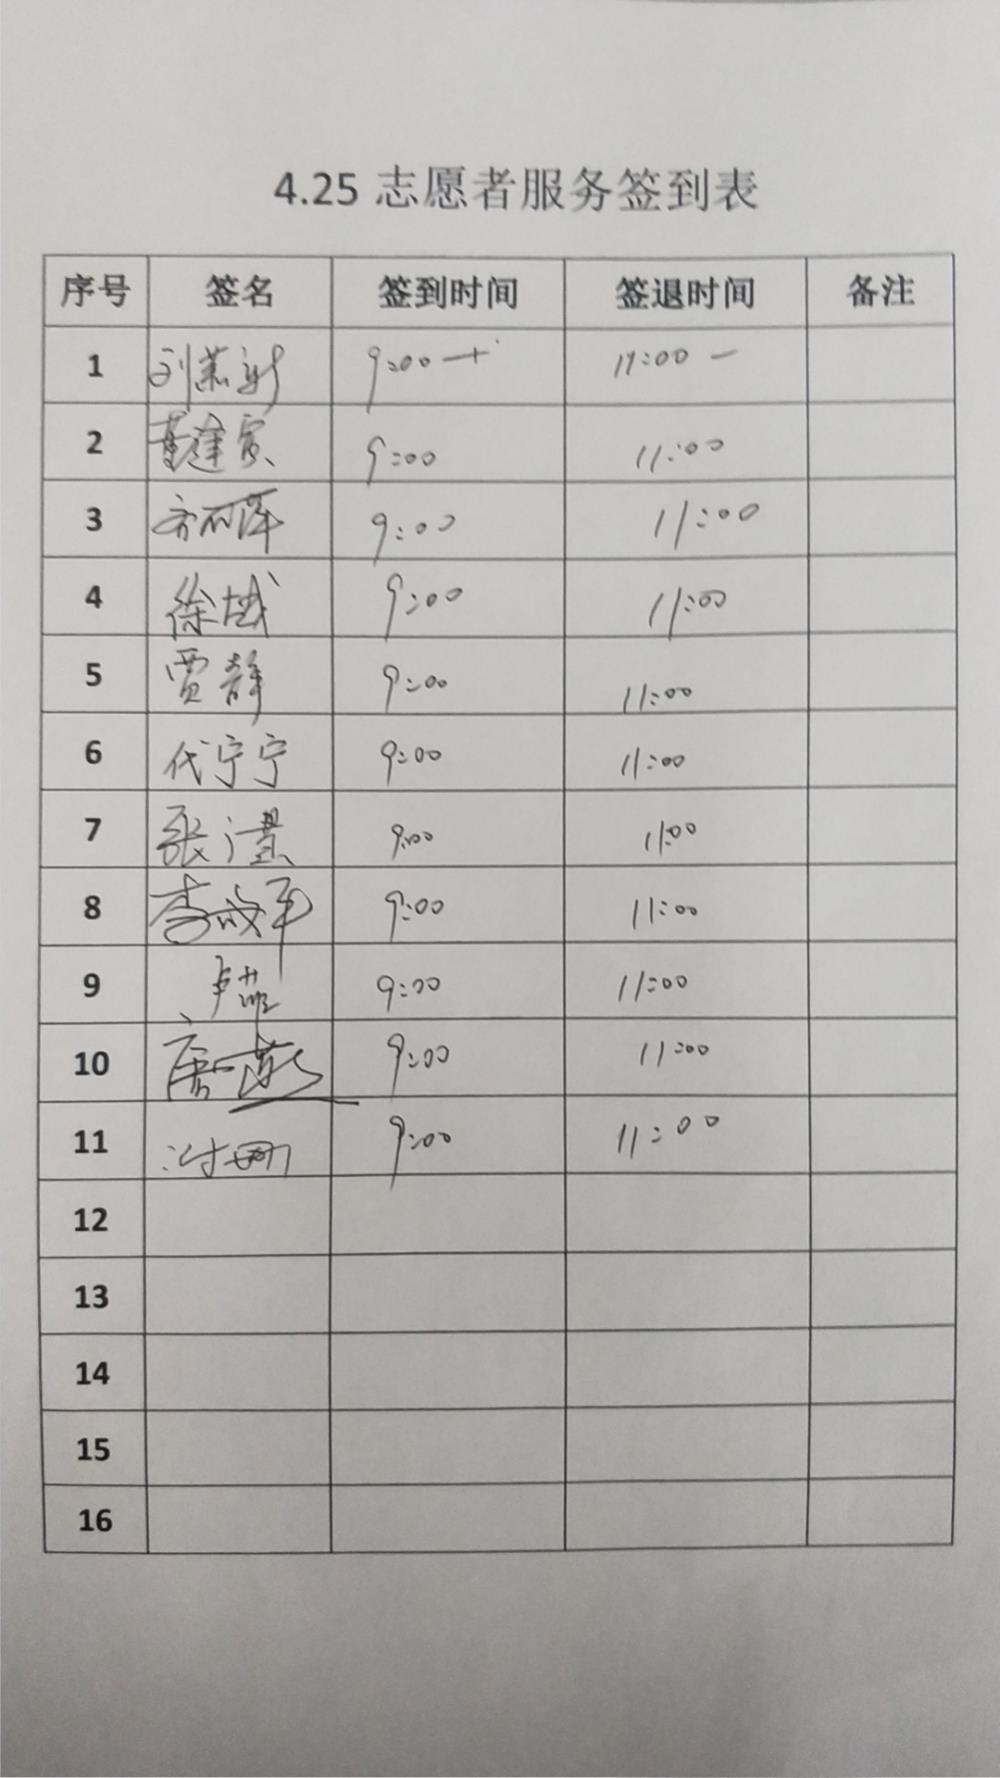 4.25 志愿者服务签到表
序号 签名 签到时间 签退时间 备注
1 刘 9:00 一 11:00 一
2 董建宾 9:00 11:00
3 9:00 11:00
4 徐域 9:00 11:00
5 贾静 9:00 11:00
6 代宁宁 9:00 11:00
7 张 9:00 11:00
8 李 9:00 11:00
9 卢 9:00 11:00
10 唐燕 9:00 11:00
11 9:00 11:00
12
13
14
15
16